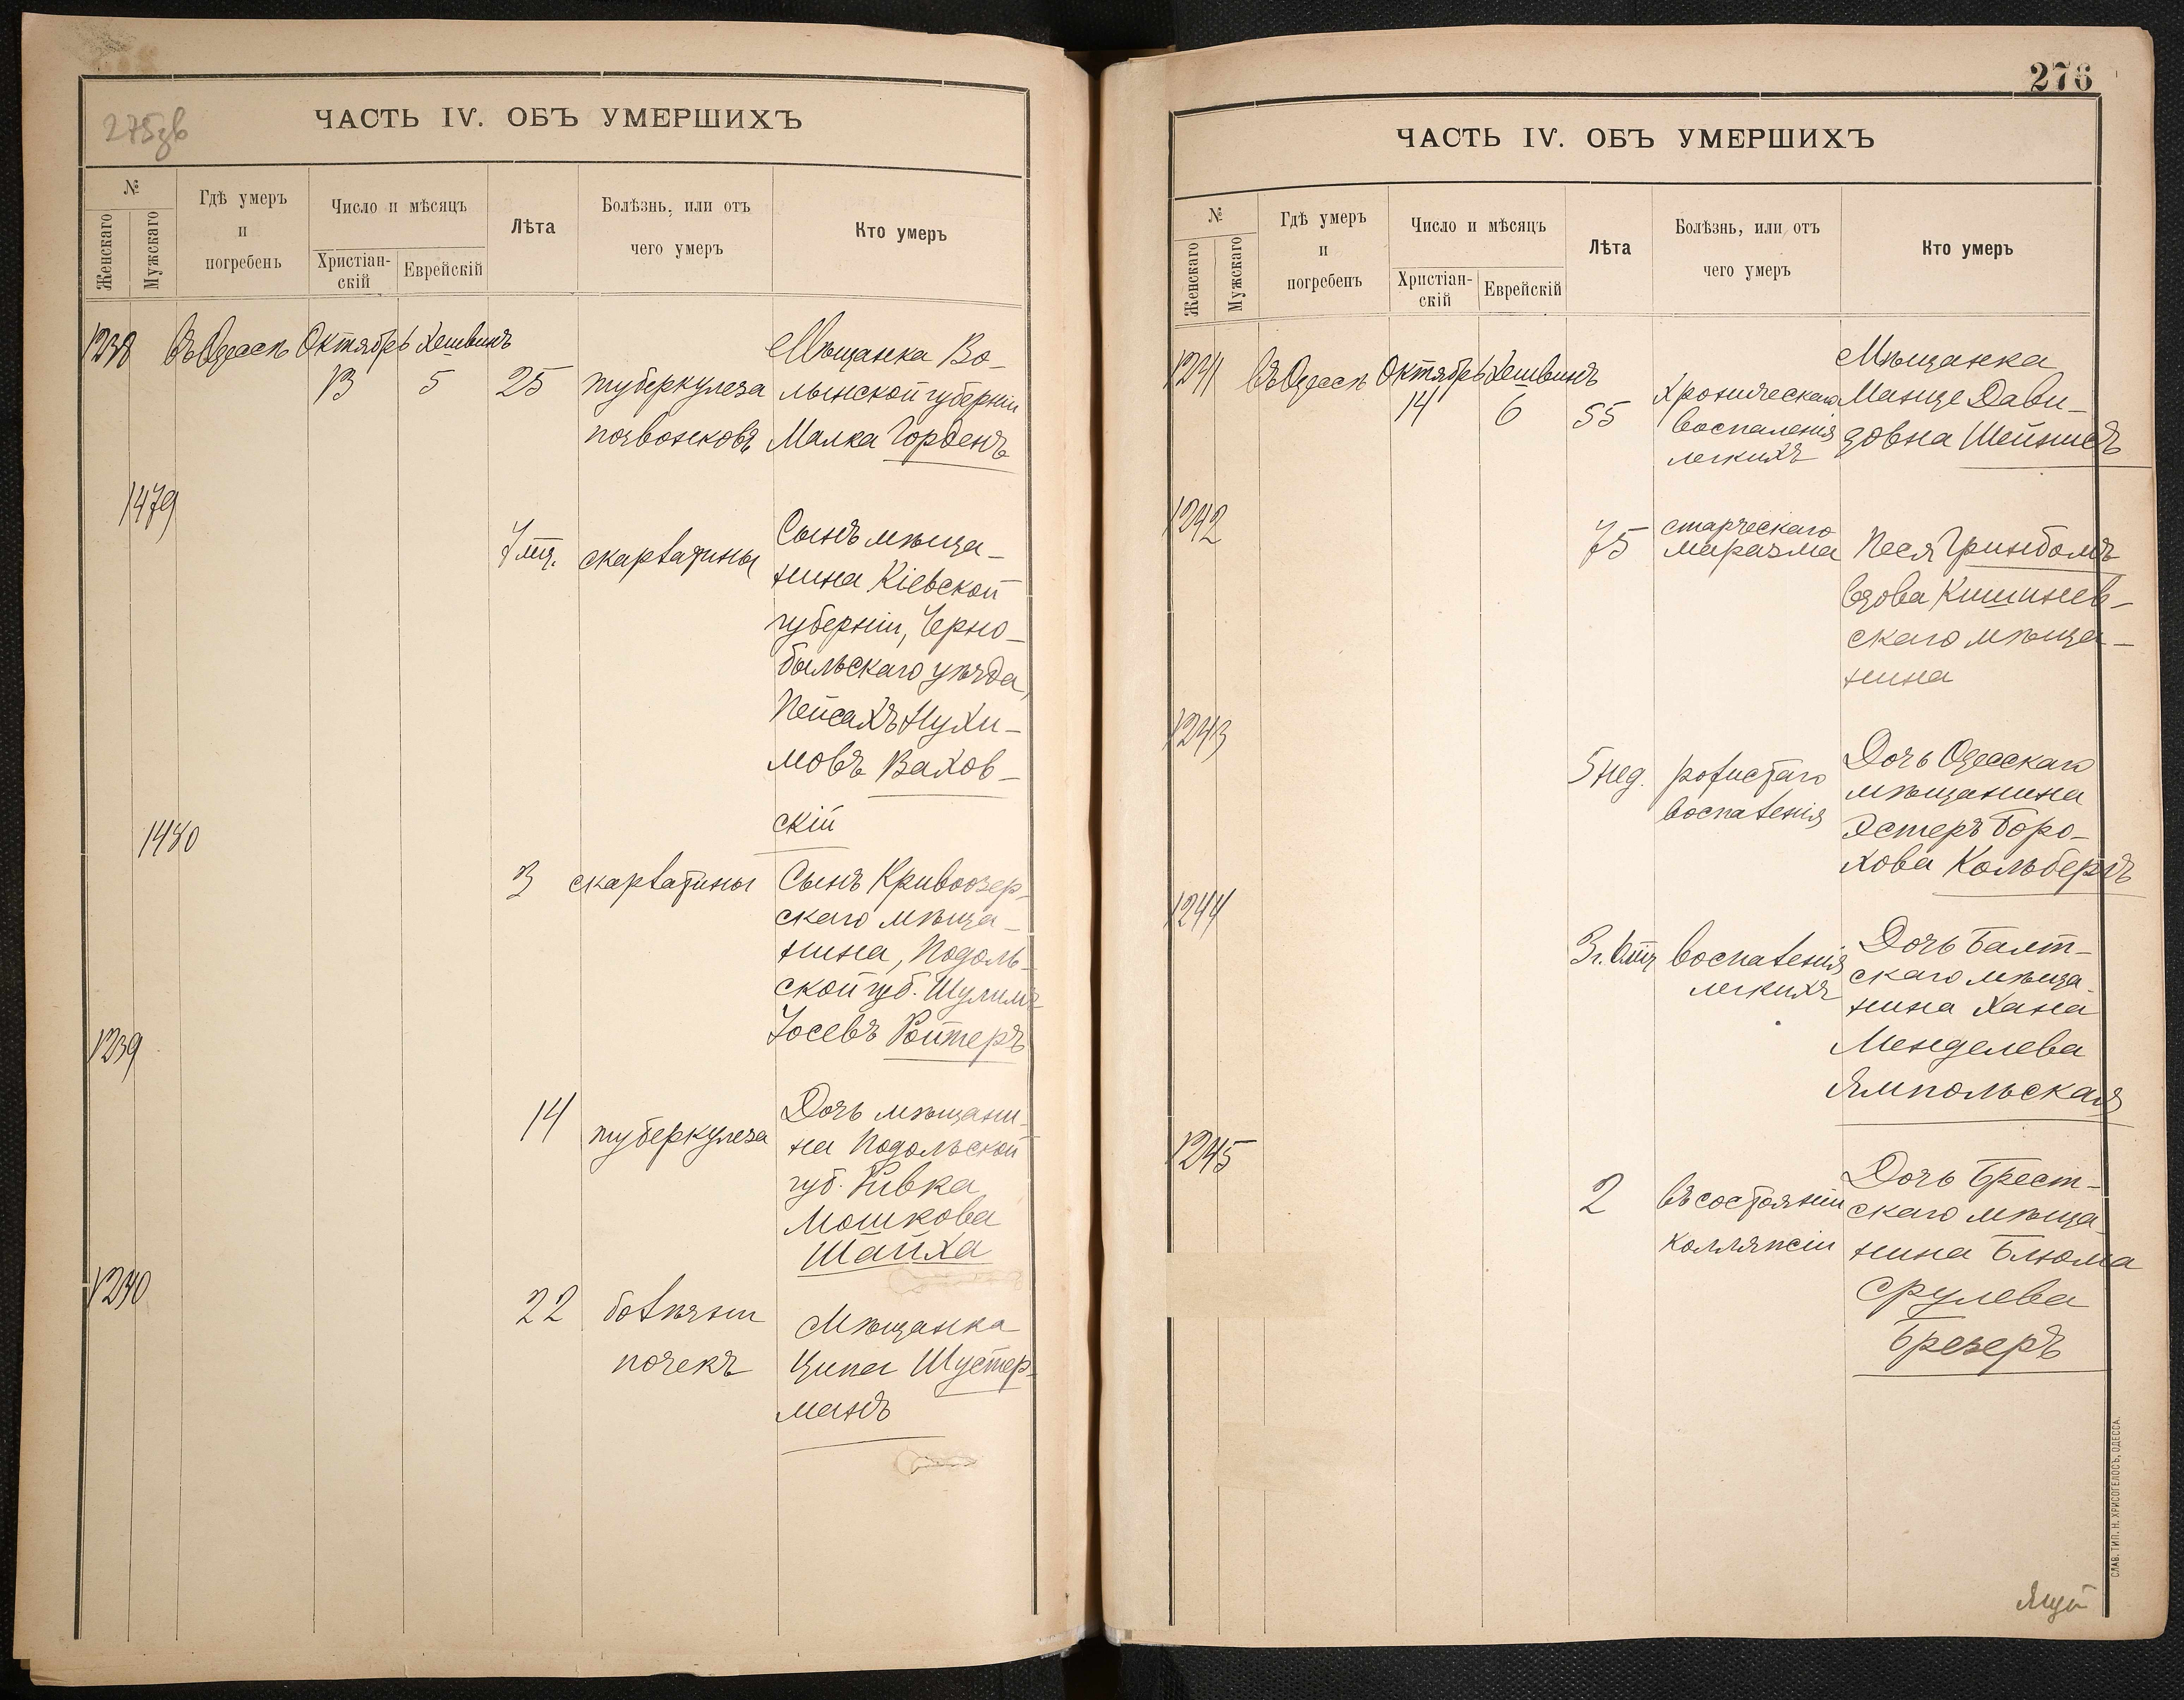 275зв
ЧАСТЬ IV. ОБЪ УМЕРШИХЪ
№
Женскаго
Мужскаго
Гдѣ умеръ
и
погребенъ
Число и мѣсяцъ
Христіан-
скій
Еврейскій
Лѣта
Болѣзнь, или отъ
чего умеръ
Кто умеръ
1238 Въ Одессѣ Октябрь Хешвинъ Мѣщанка Во-
13 5 25 туберкулеза лынской губерніи
позвонковъ Малка Горденъ
1479
7 мц. скарлатины Сынъ мѣща-
нина Кіевской
губерніи, Черно-
быльскаго уѣзда,
Пейсахъ Нухи-
мовъ Вахов-
скій
1480
3 скарлатины Сынъ Кривоозер-
скаго мѣща-
нина, Подоль-
ской губ. Шулимъ
Іосевъ Ройтеръ
1239
14 туберкулеза Дочь мѣщани-
на Подольской
губ. Ривка
Мошкова
Шайха
1240
22 болѣзни Мѣщанка
почекъ Ципа Шустер-
манъ
276
ЧАСТЬ IV. ОБЪ УМЕРШИХЪ
№
Женскаго
Мужскаго
Гдѣ умеръ
и
погребенъ
Число и мѣсяцъ
Христіан-
скій
Еврейскій
Лѣта
Болѣзнь, или отъ
чего умеръ
Кто умеръ
1241 Въ Одессѣ Октябрь Хешвинъ Мѣщанка
14 6 55 хроническаго Манце Дави-
воспаленія довна Шейнисъ
легкихъ
1242
75 старческаго
маразма Песя Гринбомъ
вдова Кишинев-
скаго мѣща-
нина
1243
5 нед. рожистаго Дочь Одесскаго
воспаленія мѣщанина
Эстеръ Боро-
хова Кольбергъ
1244
3 г. 6 мц воспаленія Дочь Балт-
легкихъ скаго мѣща-
нина Хана
Менделева
Ямпольская
1245
2 въ состояніи Дочь Брест-
колляпсіи скаго мѣща-
нина Блюма
Срулева
Брезеръ
СЛАВ. ТИП. Н. ХРИСОГЕЛОСЪ, ОДЕССА.